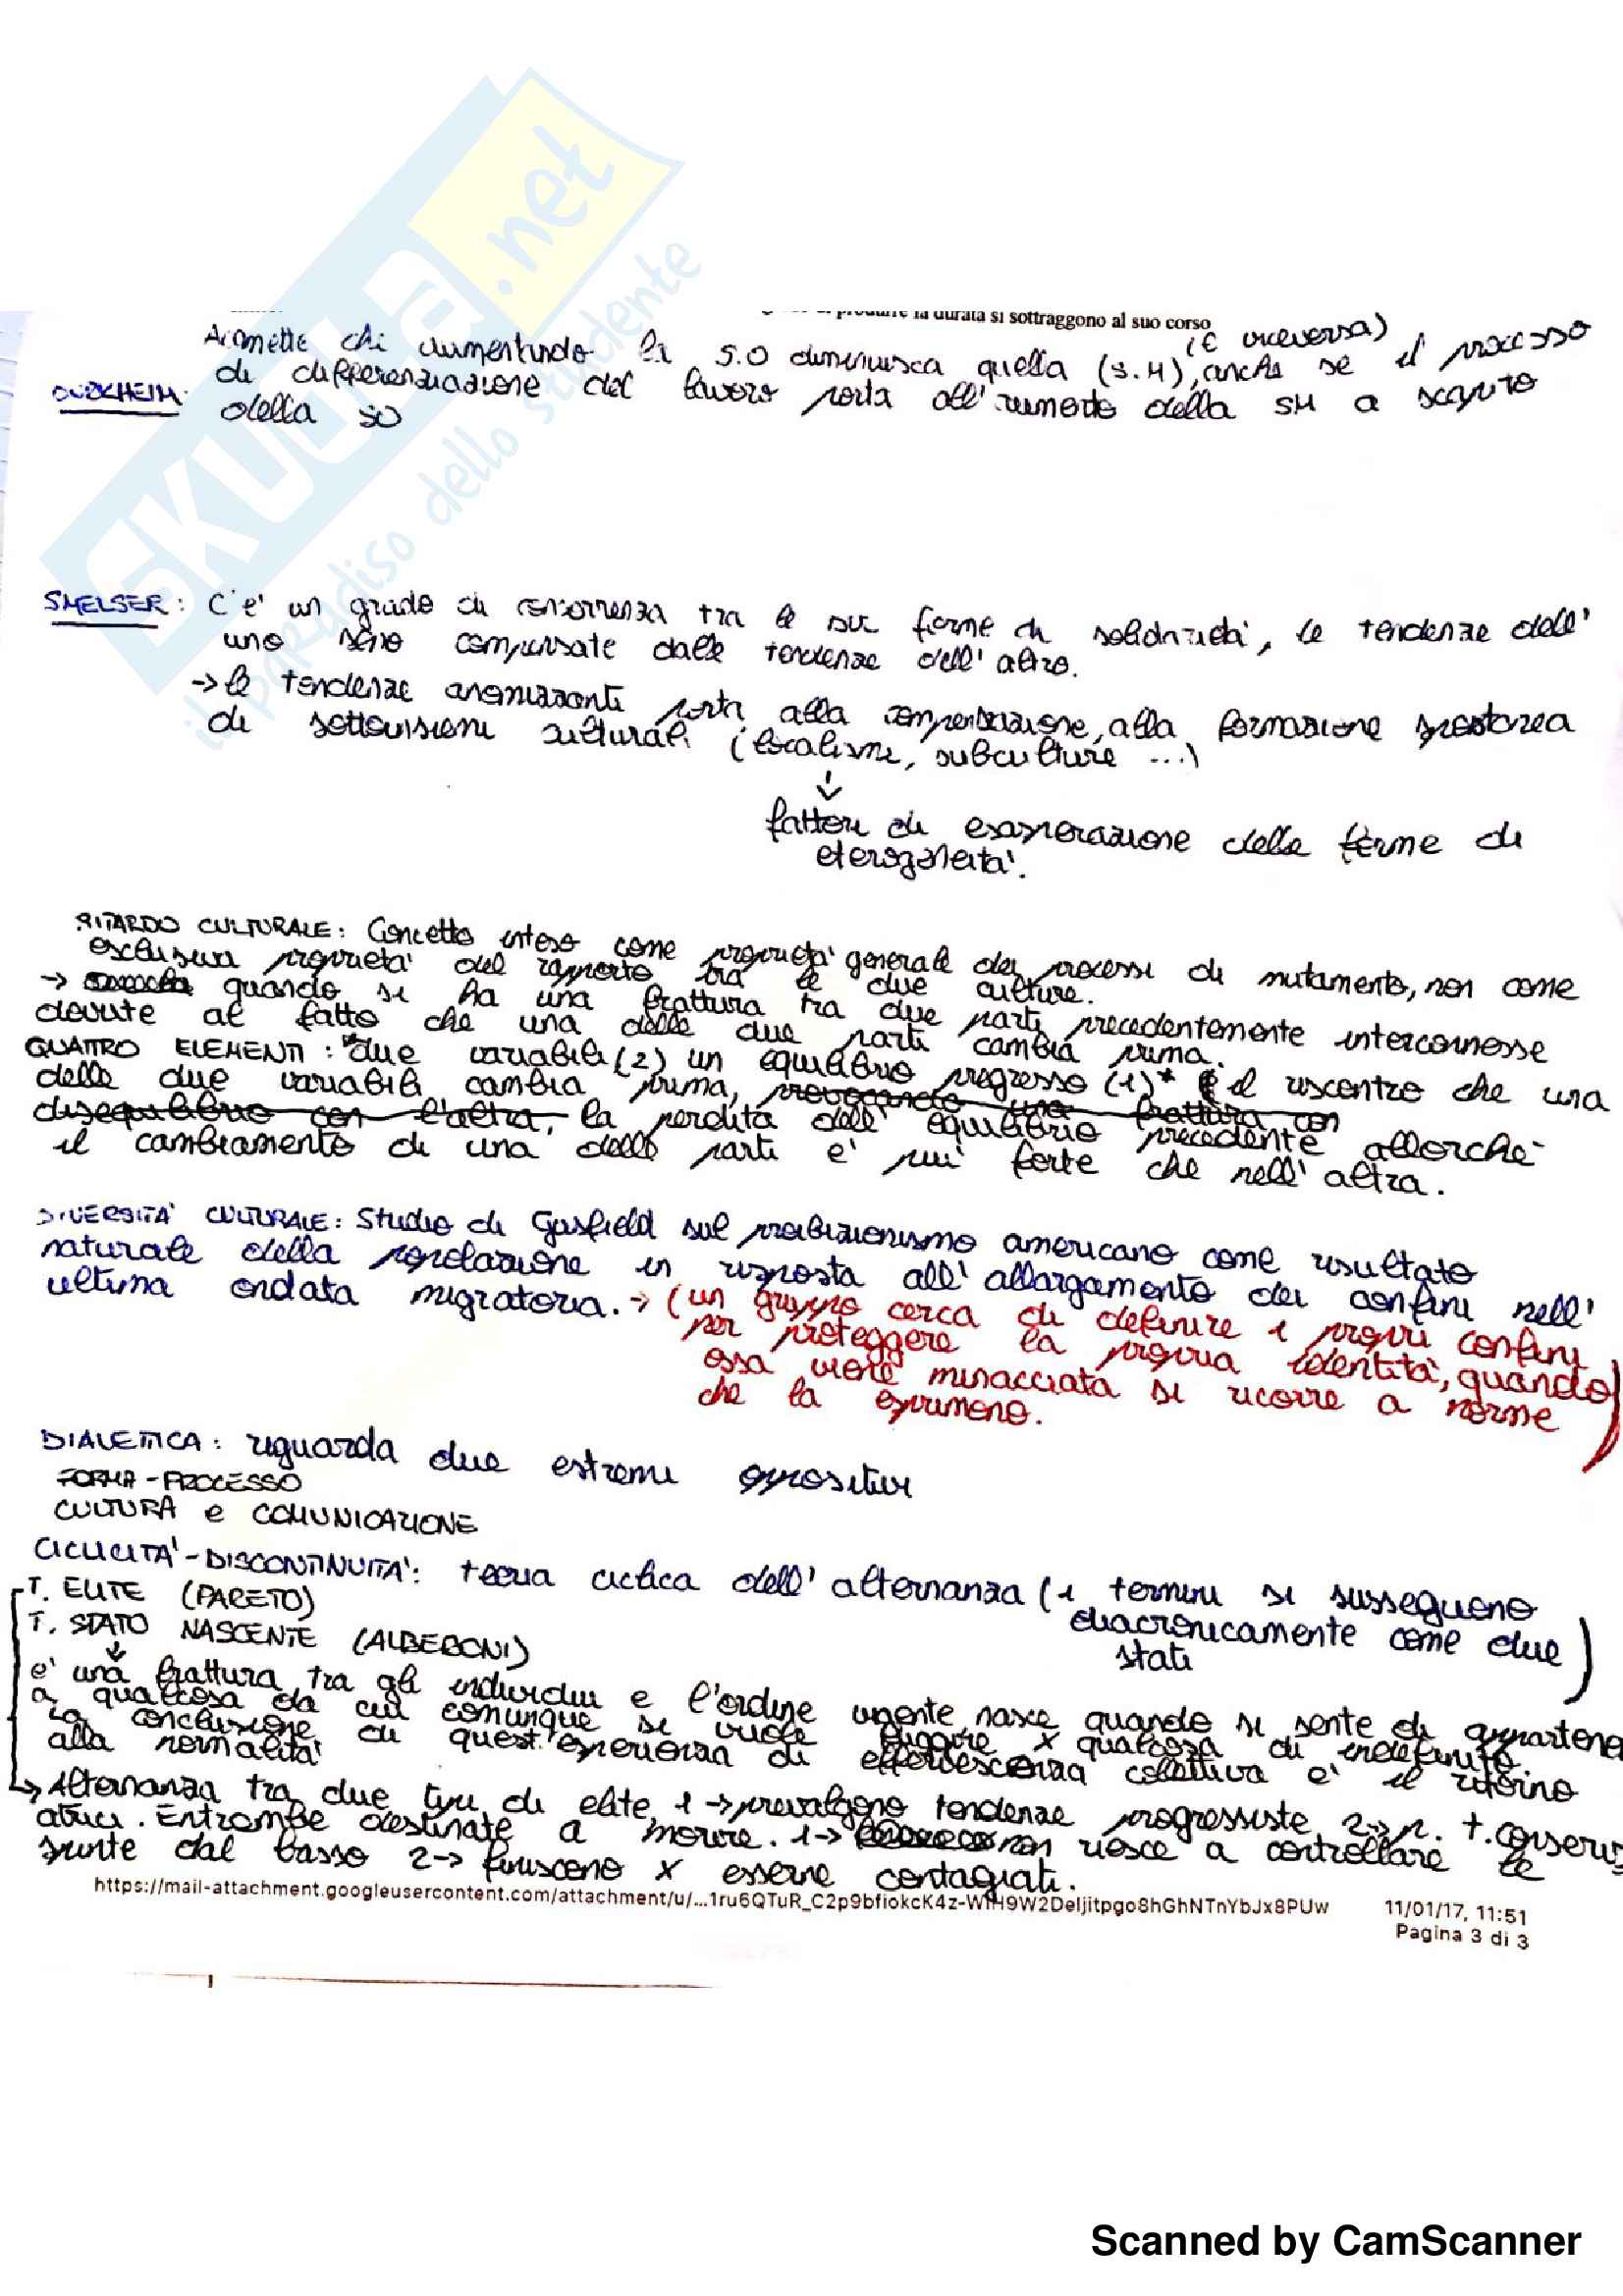 SKUOLA.net
il paradiso dello studente
produrre la durata si sottraggono al suo corso
(e viceversa)
Ammette chi aumentando la S.O diminuisca quella (S.M), anche se il processo
DURKHEIM: di differenziazione del lavoro porta all'aumento della SM a scapito
della SO
SMELSER: C'è un grado di concorrenza tra le due forme di solidarietà, le tendenze dell'
uno sono compensate dalle tendenze dell'altro.
-> le tendenze anomizzanti porta alla compensazione, alla formazione spontanea
di sottovisioni culturali (localismi, subculture ...)
↓
fattori di esasperazione delle forme di
eterogeneità.
RITARDO CULTURALE: Concetto inteso come proprietà generale dei processi di mutamento, non come
esclusiva proprietà del rapporto tra le due culture.
-> quando si ha una frattura tra due parti precedentemente interconnesse
dovute al fatto che una delle due parti cambia prima.
QUATTRO ELEMENTI: due variabili (2) un equilibrio pregresso (1)* è il riscontro che una
delle due variabili cambia prima, provocando una frattura con
disequilibrio con l'altra, la perdita dell'equilibrio precedente allorché
il cambiamento di una delle parti è più forte che nell'altra.
DIVERSITÀ CULTURALE: Studio di Gusfield sul proibizionismo americano come risultato
naturale della popolazione in risposta all'allargamento dei confini nell'
ultima ondata migratoria. -> (un gruppo cerca di definire i propri confini
per proteggere la propria identità, quando
essa viene minacciata si ricorre a norme
che la esprimono.)
DIALETTICA: riguarda due estremi oppositivi
FORMA - PROCESSO
CULTURA e COMUNICAZIONE
CICLICITÀ - DISCONTINUITÀ: teoria ciclica dell'alternanza (i termini si susseguono
diacronicamente come due
stati)
T. ELITE (PARETO)
T. STATO NASCENTE (ALBERONI)
↓
è una frattura tra gli individui e l'ordine vigente nasce quando si sente di appartenere
a qualcosa da cui comunque si vuole fuggire x qualcosa di indefinito
La conclusione di quest'esperienza di effervescenza collettiva è il ritorno
alla normalità
-> Alternanza tra due tipi di elite, 1 -> prevalgono tendenze progressiste 2 -> p. t. conserv
atrici. Entrambe destinate a morire. 1 -> non riesce a controllare le
spinte dal basso 2 -> finiscono x esserne contagiati.
https://mail-attachment.googleusercontent.com/attachment/u/...1ru6QTuR_C2p9bfiokcK4z-WfH9W2DeIjitpgo8hGhNTnYbJx8PUw
11/01/17, 11:51
Pagina 3 di 3
Scanned by CamScanner